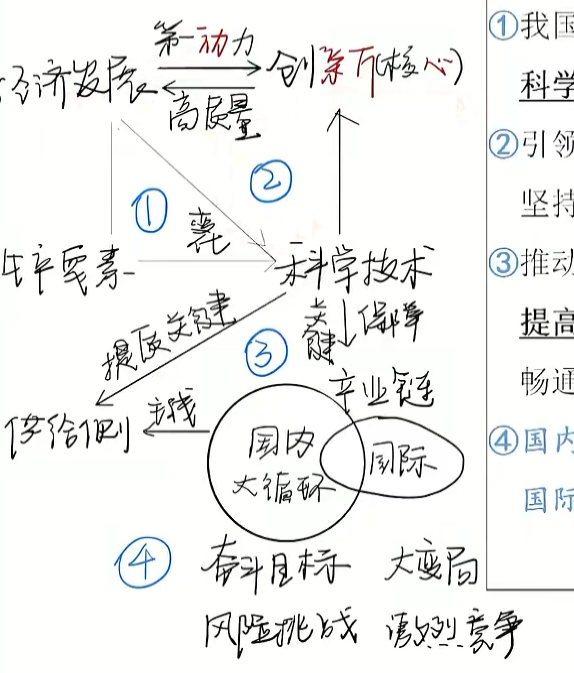 第一动力
经济发展 创新(核心)
高质量
① ②
生产要素 科学技术
提质关键 ③ 关键 保障
产业链
供给侧 主线
国内 国际
大循环
④ 奋斗目标 大变局
风险挑战 激烈竞争
①我国
科学
②引领
坚持
③推动
提高
畅通
④国内
国际